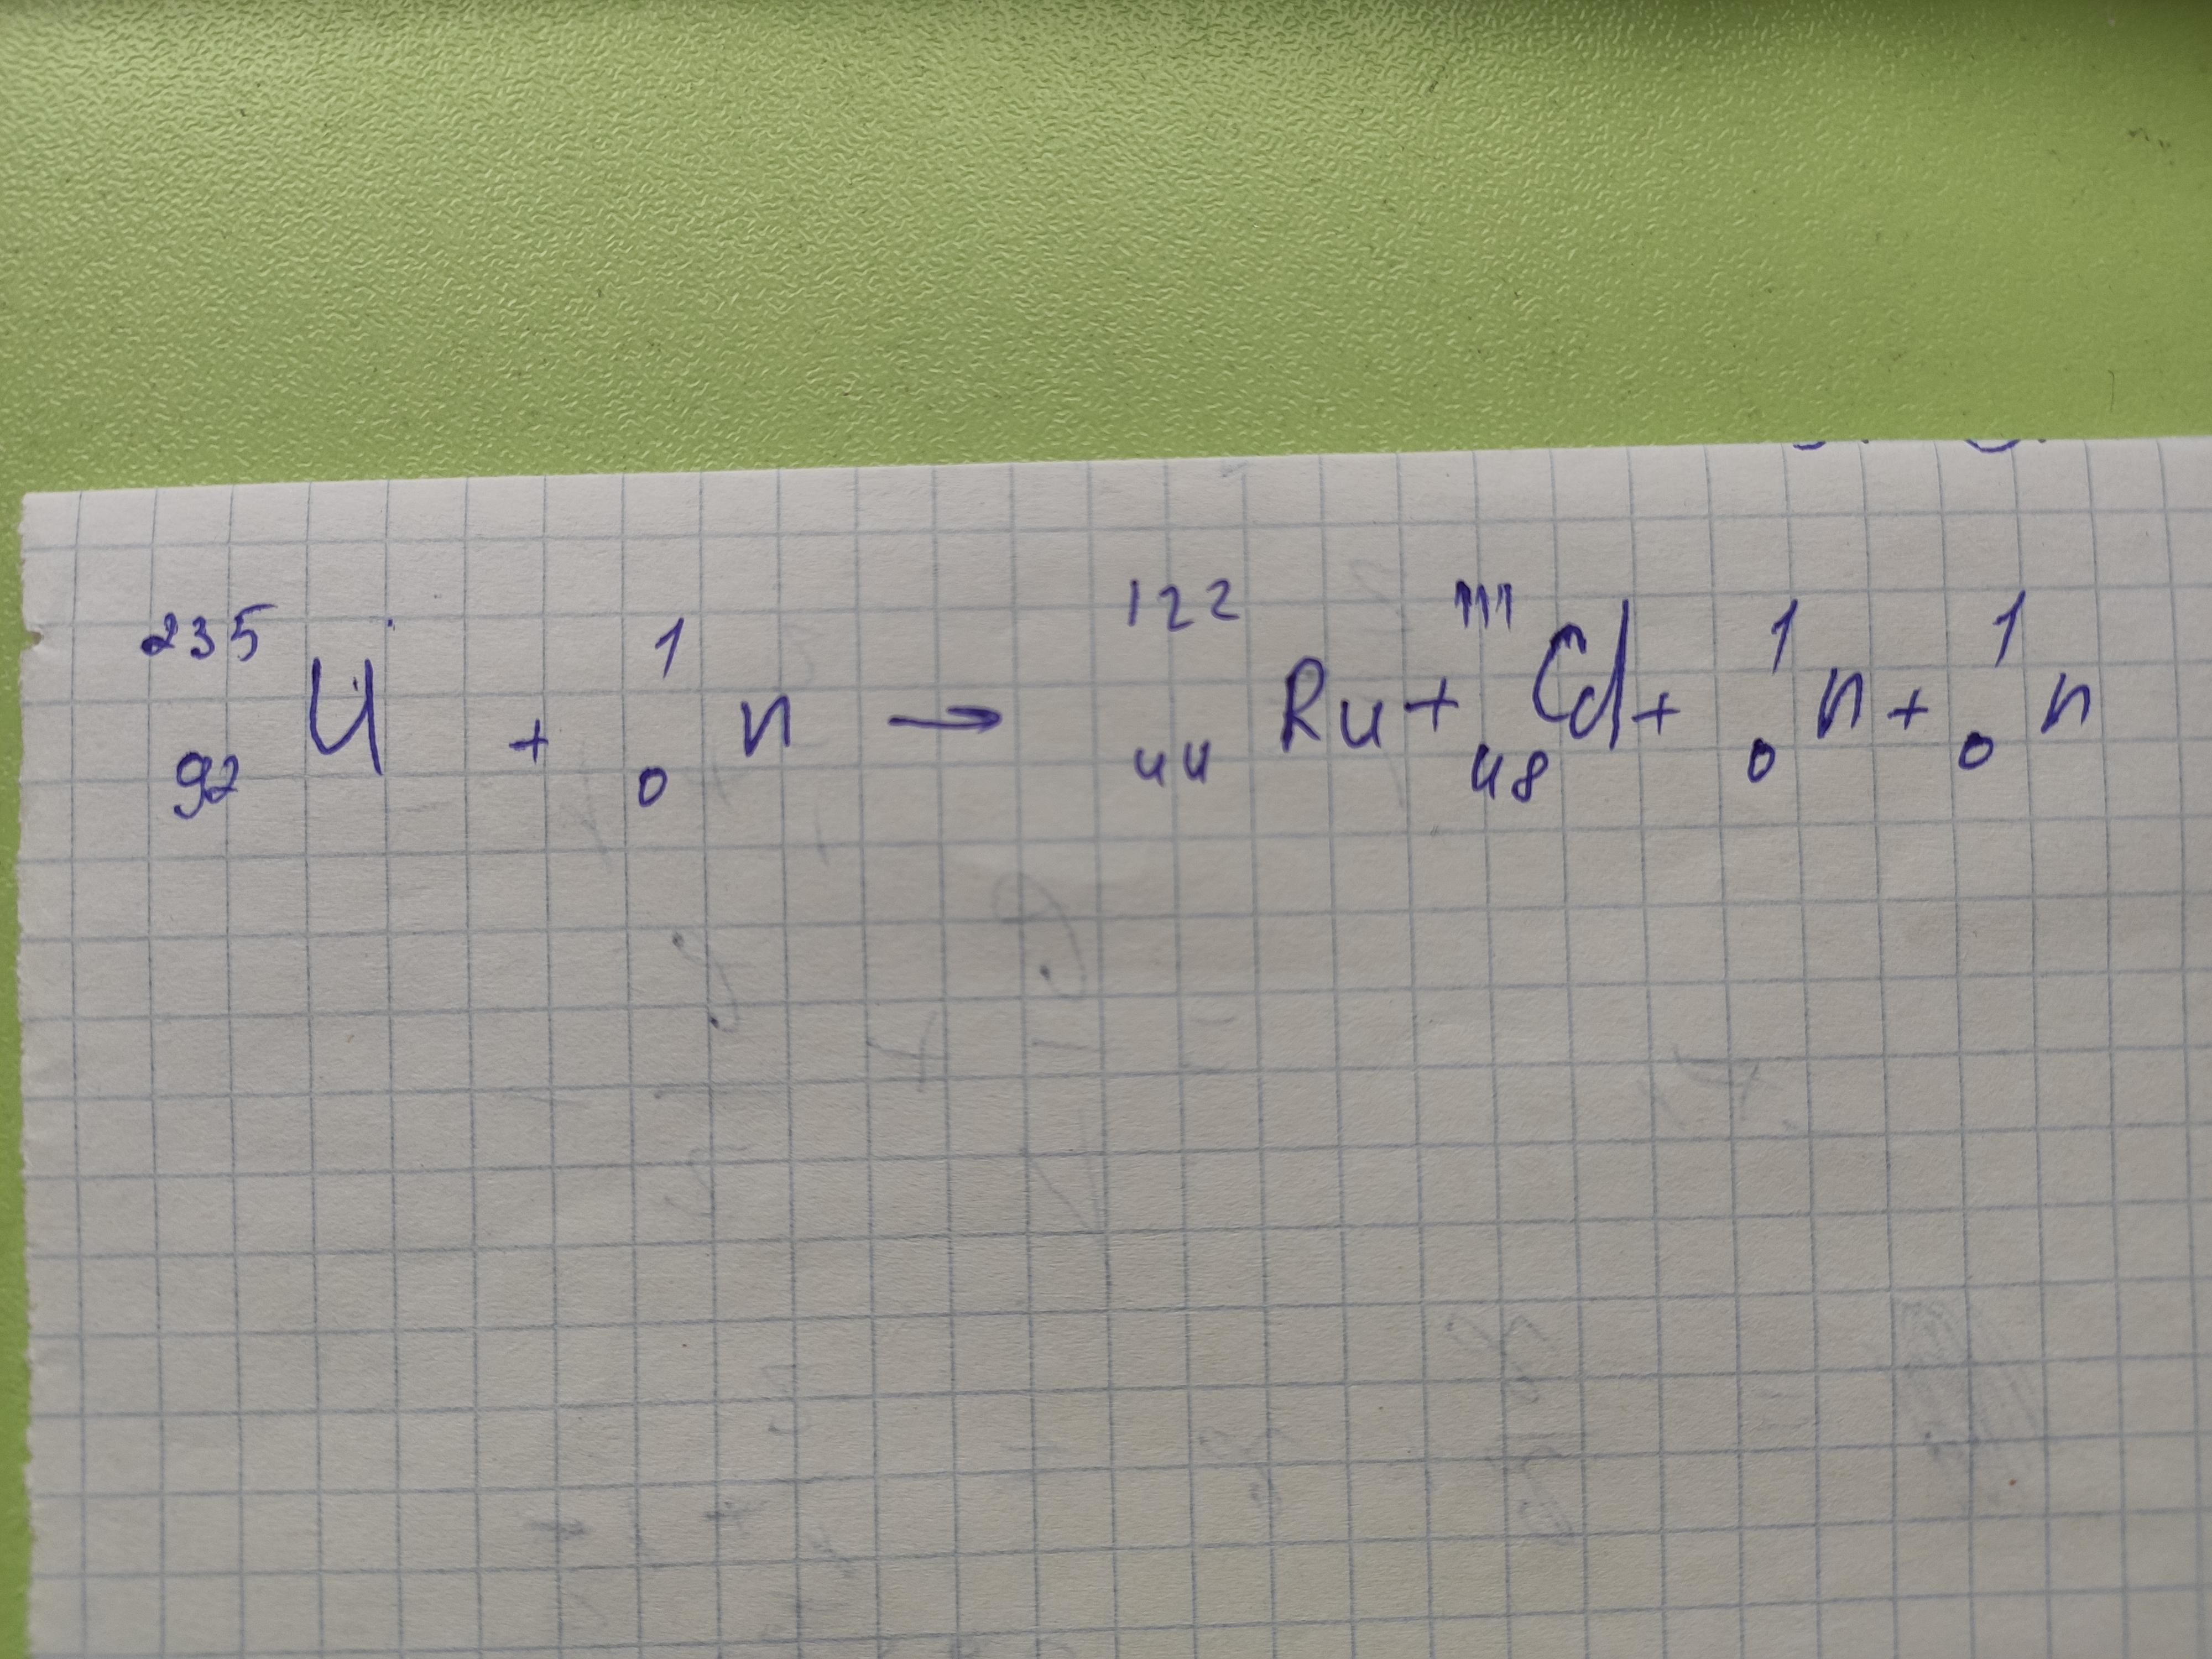 ²³⁵₉₂U + ¹₀n → ¹²²₄₄Ru + ¹¹¹₄₈Cd + ¹₀n + ¹₀n